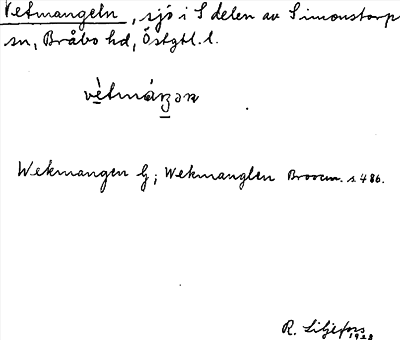 Vetmangeln, sjö i S delen av Simonstorps
sn, Bråbo hd, Östgtl. l.
vètmáŋən
Wekmangen G; Wekmanglen Broocm. s. 486.
R. Liljefors
1928